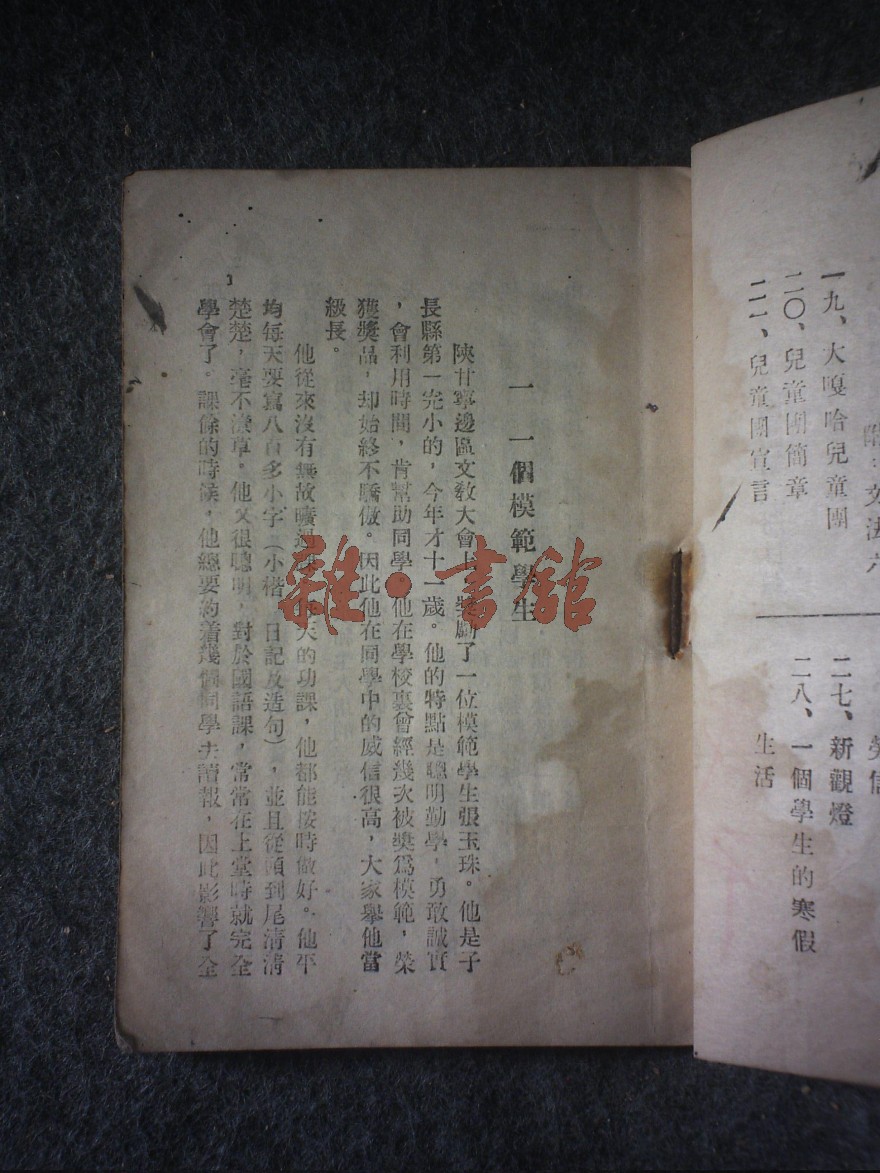 附：文法六
一九、大嘎哈兒童團
二〇、兒童團簡章
二一、兒童團宣言
二七、新觀燈
二八、一個學生的寒假
生活
一 一個模範學生
陝甘寧邊區文教大會上，獎勵了一位模範學生張玉珠。他是子
長縣第一完小的，今年才十一歲。他的特點是聰明勤學，勇敢誠實
，會利用時間，肯幫助同學。他在學校裏曾經幾次被奬爲模範，榮
獲獎品，却始終不驕傲。因此他在同學中的威信很高，大家舉他當
級長。
他從來沒有無故曠過課，每天的功課，他都能按時做好。他平
均每天要寫八百多小字（小楷、日記及造句），並且從頭到尾清清
楚楚，毫不潦草。他又很聰明，對於國語課，常常在上堂時就完全
學會了。課餘的時候，他總要約着幾個同學去讀報，因此影響了全
1
雜·書館